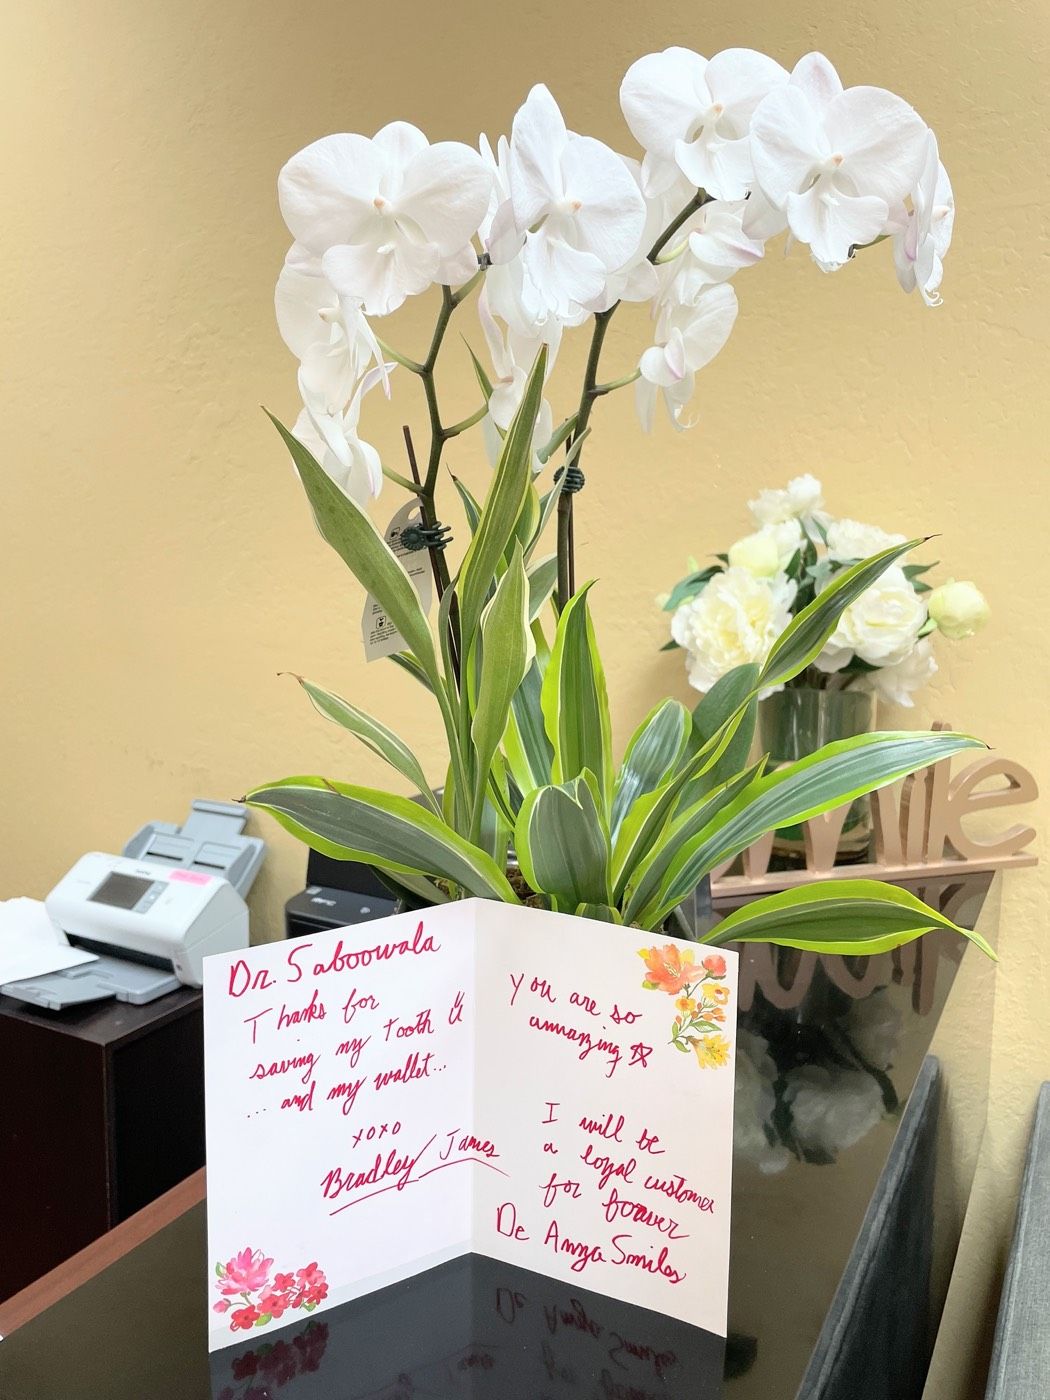 Dr. Saboowala
Thanks for
saving my tooth
... and my wallet...
xoxo
Bradley James
you are so
amazing
I will be
a loyal customer
for forever
De Anza Smiles
mile